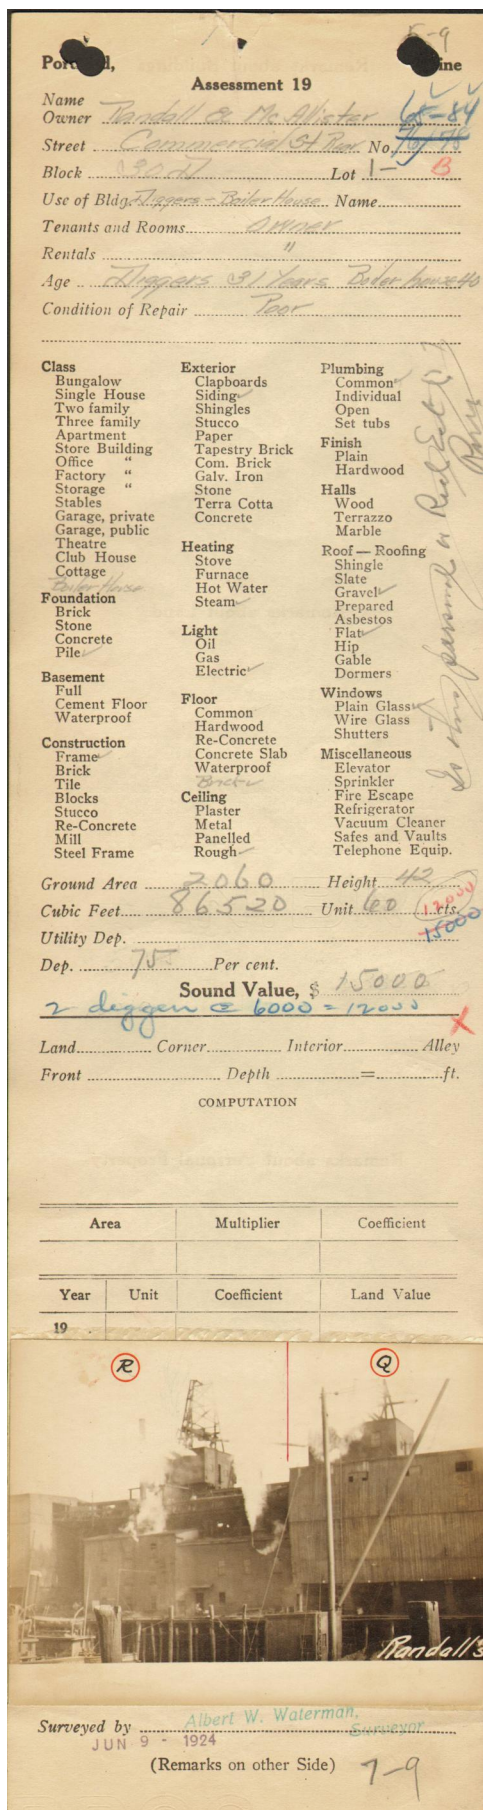 5-9
Portland, Maine
Assessment 19
Name
Owner Randall & McAllister 68-84
Street Commercial St Rear No. 76/78
Block 30 Lot 1- B
Use of Bldg. Diggers - Boiler House Name
Tenants and Rooms Owner
Rentals "
Age Diggers 31 Years Boiler house 40
Condition of Repair Poor
Class
Bungalow
Single House
Two family
Three family
Apartment
Store Building
Office "
Factory "
Storage "
Stables
Garage, private
Garage, public
Theatre
Club House
Cottage
Boiler House
Foundation
Brick
Stone
Concrete
Pile ✓
Basement
Full
Cement Floor
Waterproof
Construction
Frame ✓
Brick
Tile
Blocks
Stucco
Re-Concrete
Mill
Steel Frame
Exterior
Clapboards
Siding ✓
Shingles
Stucco
Paper
Tapestry Brick
Com. Brick
Galv. Iron
Stone
Terra Cotta
Concrete
Heating
Stove
Furnace
Hot Water
Steam ✓
Light
Oil
Gas
Electric ✓
Floor
Common
Hardwood
Re-Concrete
Concrete Slab
Waterproof
Brick ✓
Ceiling
Plaster
Metal
Panelled
Rough ✓
Plumbing
Common ✓
Individual
Open
Set tubs
Finish
Plain
Hardwood
Halls
Wood
Terrazzo
Marble
Roof — Roofing
Shingle
Slate
Gravel ✓
Prepared
Asbestos
Flat ✓
Hip
Gable
Dormers
Windows
Plain Glass ✓
Wire Glass
Shutters
Miscellaneous
Elevator
Sprinkler
Fire Escape
Refrigerator
Vacuum Cleaner
Safes and Vaults
Telephone Equip.
Is this personal or Real Est
Ground Area 2060 Height 42
Cubic Feet 86520 Unit 60 cts.
12000
15000
Utility Dep.
Dep. 75 Per cent.
Sound Value, $ 15000
2 diggers @ 6000 = 12000 X
Land Corner Interior Alley
Front Depth = ft.
COMPUTATION
Area Multiplier Coefficient
Year Unit Coefficient Land Value
19
R Q
Randall's
Surveyed by Albert W. Waterman,
Surveyor
JUN 9 - 1924
(Remarks on other Side) 7-9